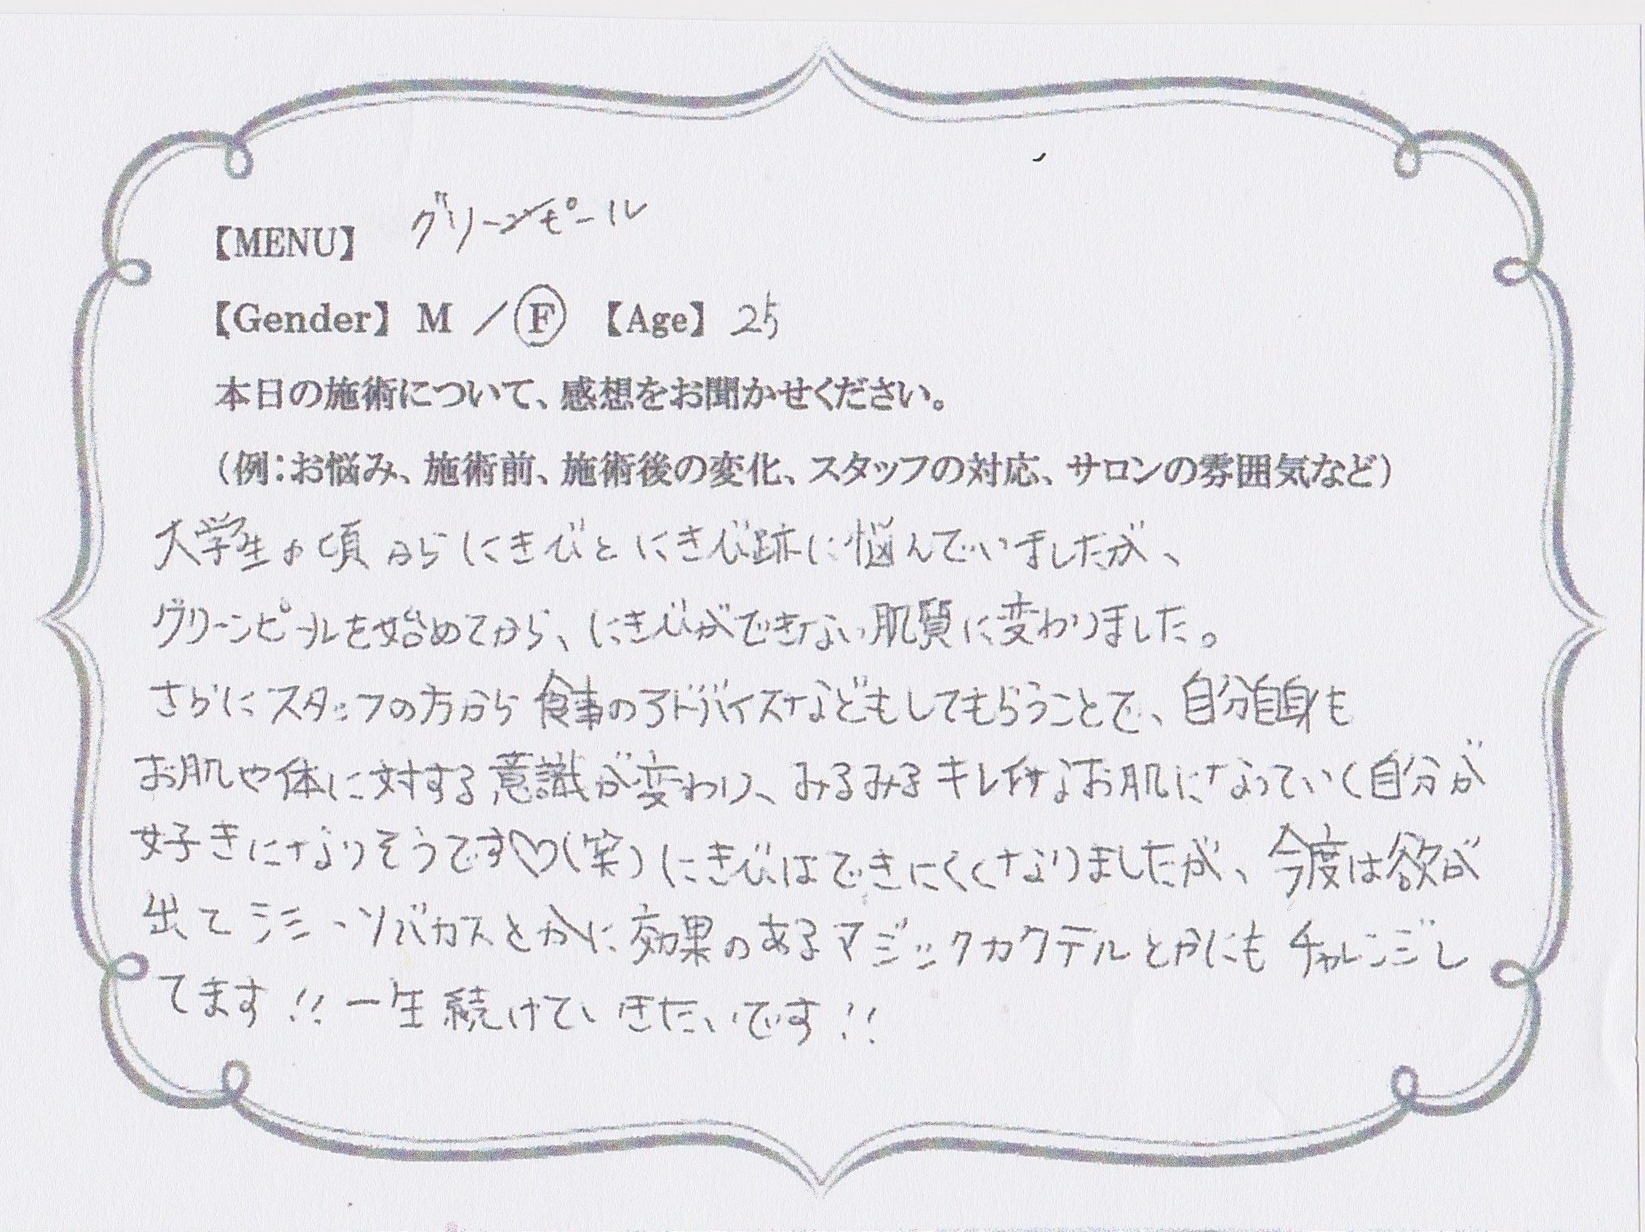 【MENU】 グリーンピール
【Gender】 M ／ F 【Age】 25
本日の施術について、感想をお聞かせください。
（例：お悩み、施術前、施術後の変化、スタッフの対応、サロンの雰囲気など）
大学生の頃からにきびとにきび跡に悩んでいましたが、
グリーンピールを始めてから、にきびができない肌質に変わりました。
さらにスタッフの方から食事のアドバイスなどもしてもらうことで、自分自身も
お肌や体に対する意識が変わり、みるみるキレイなお肌になっていく自分が
好きになりそうです♡(笑) にきびはできにくくなりましたが、今度は欲が
出てシミ・ソバカスとかに効果のあるマジックカクテルとかにもチャレンジし
てます!! 一生続けていきたいです!!